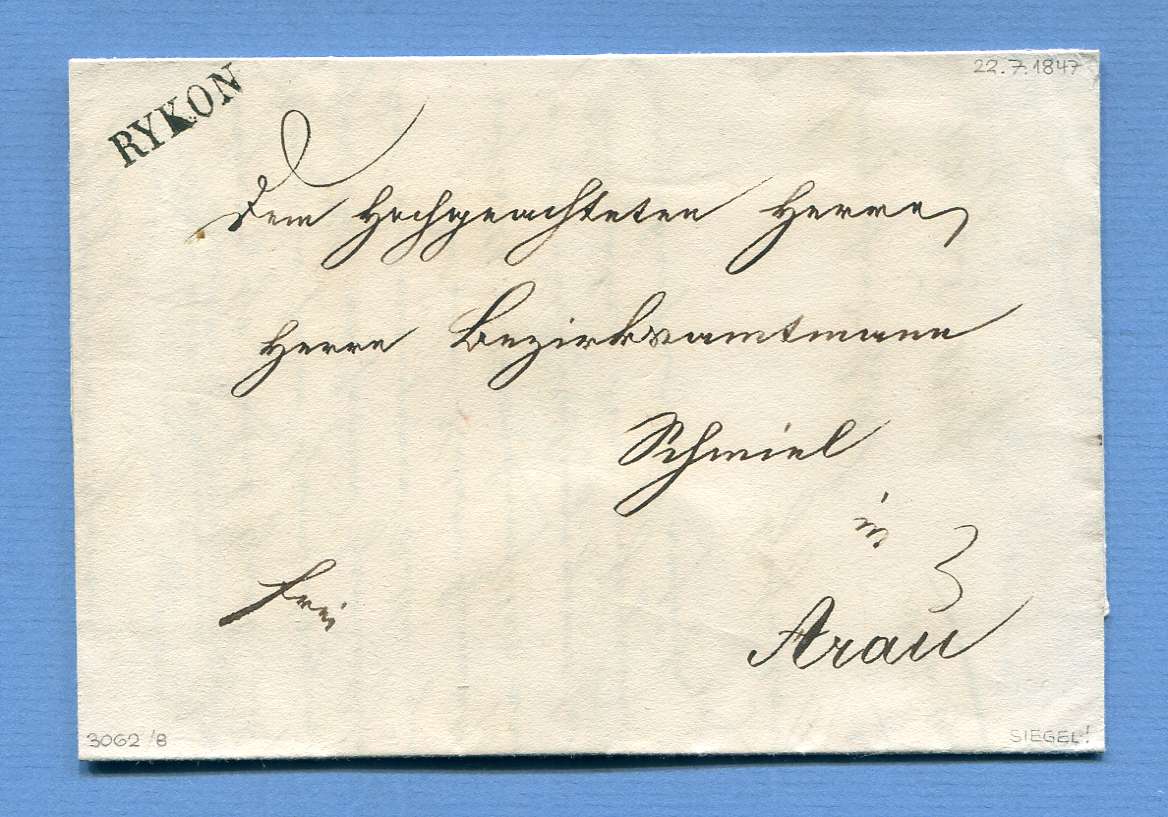 RYKON
22.7.1847
Dem Hochgeachteten Herren,
Herrn Bezirksamtmann
Schmiel
in
Arau
frei
3062/8
SIEGEL!